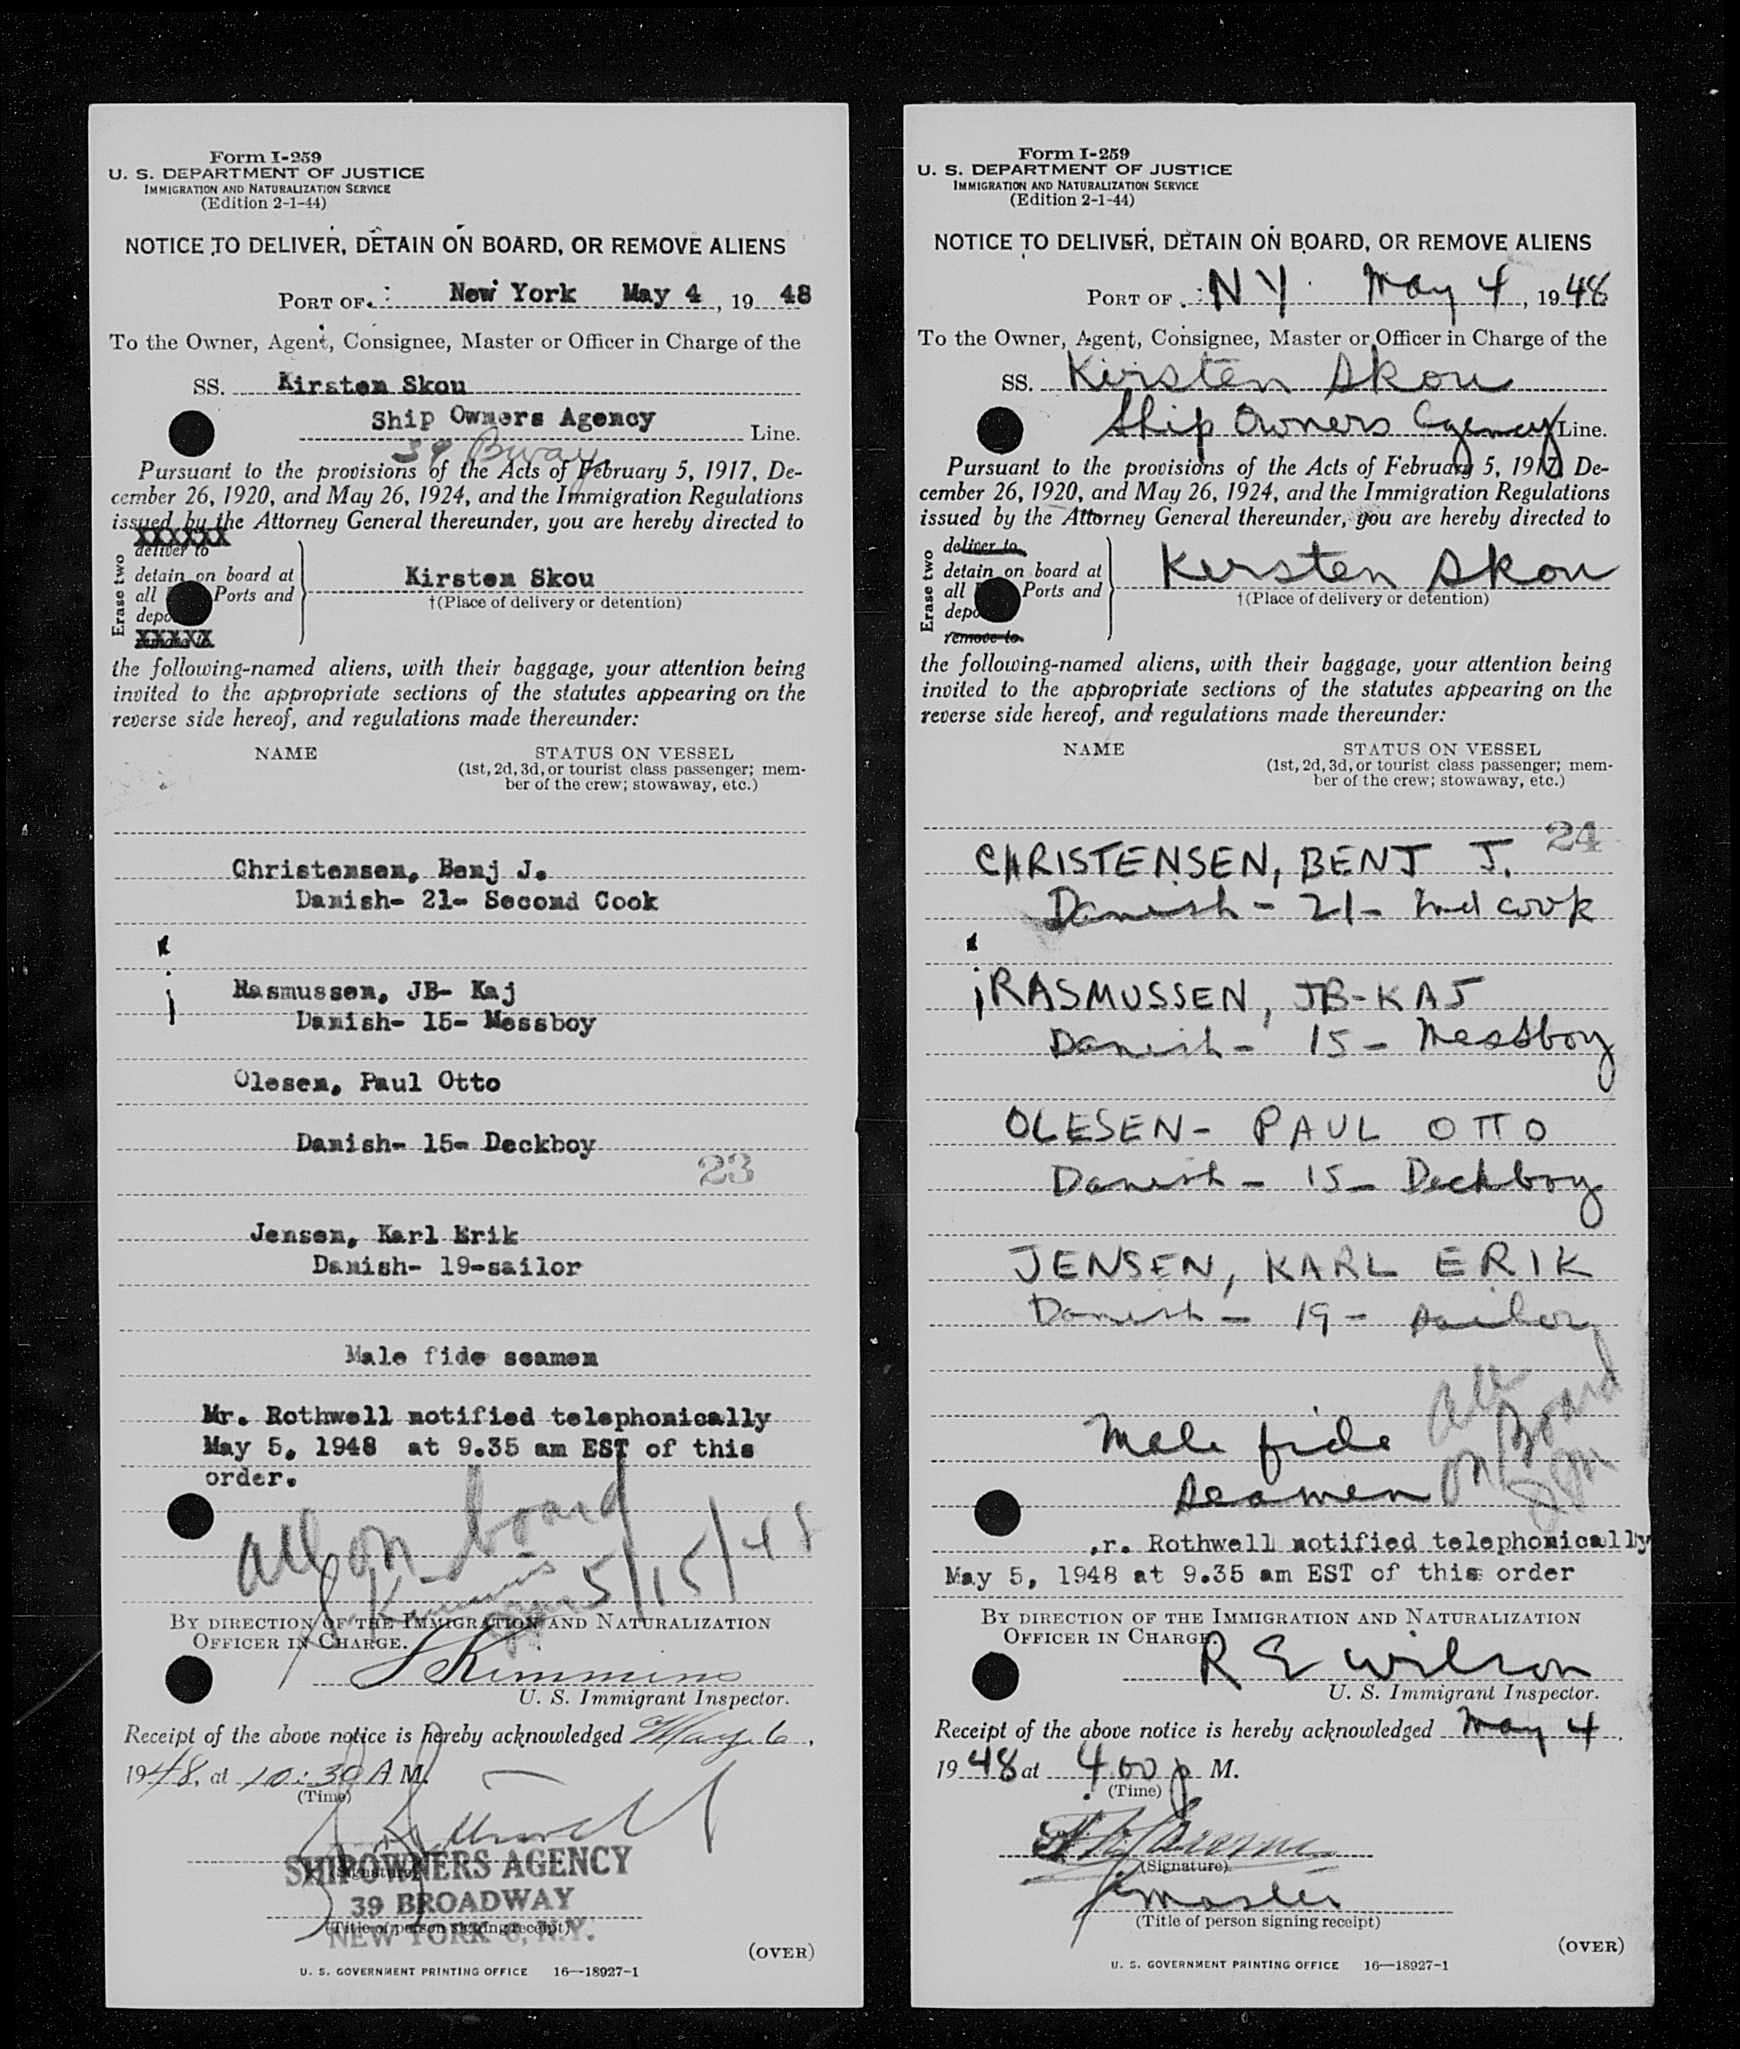 Form I-259
U. S. DEPARTMENT OF JUSTICE
IMMIGRATION AND NATURALIZATION SERVICE
(Edition 2-1-44)
NOTICE TO DELIVER, DETAIN ON BOARD, OR REMOVE ALIENS
PORT OF New York May 4, 1948
To the Owner, Agent, Consignee, Master or Officer in Charge of the
SS. Kirsten Skou
Ship Owners Agency Line.
39 Bway
Pursuant to the provisions of the Acts of February 5, 1917, De-
cember 26, 1920, and May 26, 1924, and the Immigration Regulations
issued by the Attorney General thereunder, you are hereby directed to
XXXXXX
Erase two
deliver to
detain on board at
all Ports and
depo
XXXXX
remove to
Kirsten Skou
†(Place of delivery or detention)
the following-named aliens, with their baggage, your attention being
invited to the appropriate sections of the statutes appearing on the
reverse side hereof, and regulations made thereunder:
NAME STATUS ON VESSEL
(1st, 2d, 3d, or tourist class passenger; mem-
ber of the crew; stowaway, etc.)
Christensen, Benj J.
Danish- 21- Second Cook
Rasmussen, JB- Kaj
Danish- 15- Messboy
Olesen, Paul Otto
Danish- 15- Deckboy
23
Jensen, Karl Erik
Danish- 19-sailor
Male fide seamen
Mr. Rothwell notified telephonically
May 5, 1948 at 9.35 am EST of this
order.
All on board
5/15/48
BY DIRECTION OF THE IMMIGRATION AND NATURALIZATION
OFFICER IN CHARGE.
J Kimmins
U. S. Immigrant Inspector.
Receipt of the above notice is hereby acknowledged May 6,
1948, at 10:30 A M.
(Time)
SHIPOWNERS AGENCY
(Signature)
39 BROADWAY
(Title of person signing receipt)
NEW YORK 6, N.Y.
(OVER)
U. S. GOVERNMENT PRINTING OFFICE 16—18927-1
Form I-259
U. S. DEPARTMENT OF JUSTICE
IMMIGRATION AND NATURALIZATION SERVICE
(Edition 2-1-44)
NOTICE TO DELIVER, DETAIN ON BOARD, OR REMOVE ALIENS
PORT OF N Y. May 4, 1948
To the Owner, Agent, Consignee, Master or Officer in Charge of the
SS. Kirsten Skou
Ship Owners Agency Line.
Pursuant to the provisions of the Acts of February 5, 1917, De-
cember 26, 1920, and May 26, 1924, and the Immigration Regulations
issued by the Attorney General thereunder, you are hereby directed to
Erase two
deliver to
detain on board at
all Ports and
depo
remove to
Kirsten Skou
†(Place of delivery or detention)
the following-named aliens, with their baggage, your attention being
invited to the appropriate sections of the statutes appearing on the
reverse side hereof, and regulations made thereunder:
NAME STATUS ON VESSEL
(1st, 2d, 3d, or tourist class passenger; mem-
ber of the crew; stowaway, etc.)
24
CHRISTENSEN, BENT J.
Danish - 21 - 2nd cook
RASMUSSEN, JB-KAJ
Danish - 15 - Messboy
OLESEN - PAUL OTTO
Danish - 15 - Deckboy
JENSEN, KARL ERIK
Danish - 19 - sailor
All
on Board
Male fide
seamen
.r. Rothwell notified telephonically
May 5, 1948 at 9.35 am EST of this order
BY DIRECTION OF THE IMMIGRATION AND NATURALIZATION
OFFICER IN CHARGE.
R E Wilson
U. S. Immigrant Inspector.
Receipt of the above notice is hereby acknowledged May 4,
1948 at 4.00 p M.
(Time)
(Signature)
Master
(Title of person signing receipt)
(OVER)
U. S. GOVERNMENT PRINTING OFFICE 16—18927-1